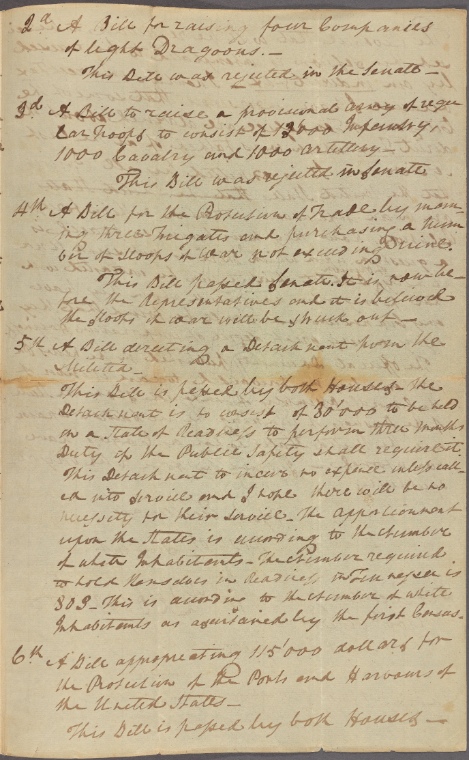 2d A Bill for raising four Companies
of light Dragoons.—
This Bill was rejected in the Senate—
3d A Bill to raise a provisional army of regu
lar troops to consist of Infentry,
1000 Cavalry and 1000 artillery—
This Bill was rejected in Senate
4th A Bill for the Protection of Trade by man-
ing three Frigates and purchasing a Num
ber of Sloops of War not exceeding Nine.
This Bill passed Senate. It is now be-
fore the Representatives and it is believed
the Sloops of war will be struck out—
5th A Bill directing a Detachment from the
Militia—
This Bill is passed by both Houses—the
Detachment is to consist of 80'000 to be held
in a State of Readiness to perform three months
Duty if the Public Safety shall require it.
This Detachment to incur no expence unless call-
ed into Service and I hope there will be no
necessity for their Service—The apportionment
upon the States is according to the Number
of white Inhabitants—The Number required
to hold themselves in Readiness in Tennessee is
803—This is according to the Number of white
Inhabitants as assertained by the first Census—
6th A Bill appropriating 115'000 dollars for
the Protection of the Ports and Harbours of
the United States—
This Bill is passed by both Houses—